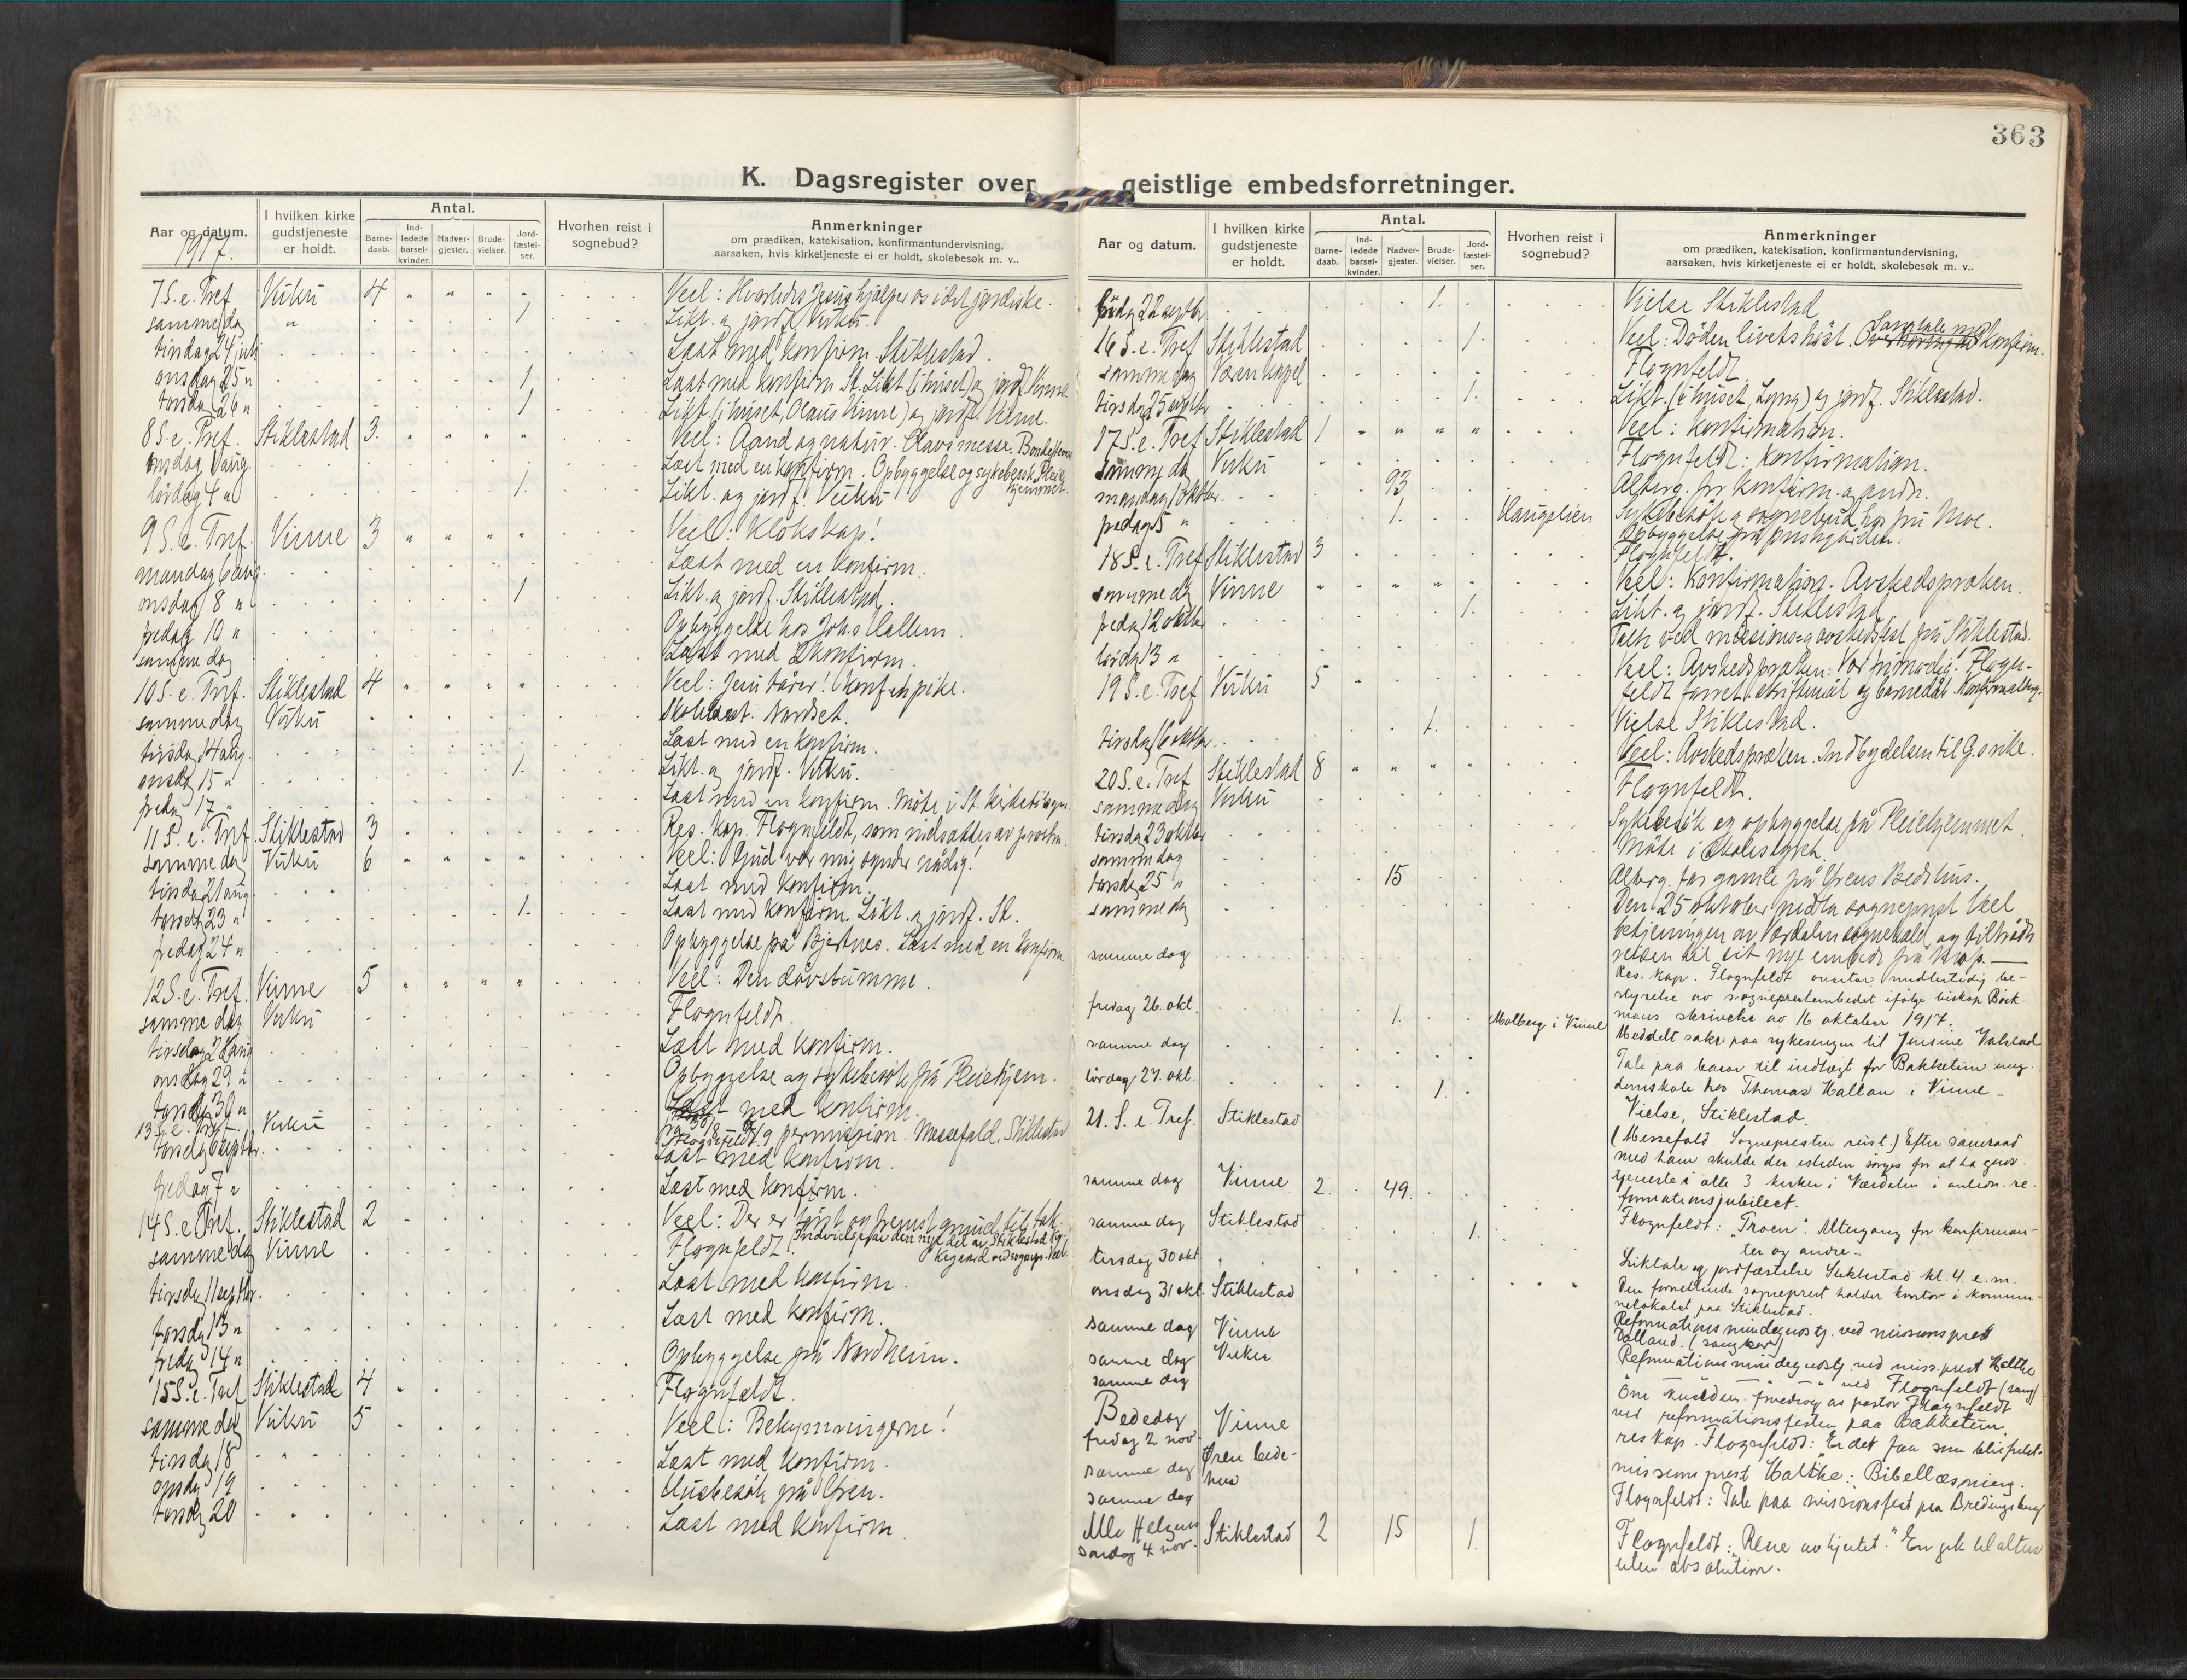 363
K. Dagsregister over geistlige embedsforretninger.
Aar og datum.
1917.
I hvilken kirke gudstjeneste er holdt.
Antal.
Barne-daab.
Ind-ledede barsel-kvinder.
Nadver-gjester.
Brude-vielser.
Jord-fæstel-ser.
Hvorhen reist i sognebud?
Anmerkninger
om prædiken, katekisation, konfirmantundervisning,
aarsaken, hvis kirketjeneste ei er holdt, skolebesøk m. v..
7 S. e. Tref Vuku 4 " " " " Veel: Hvorledes Jesus hjælper os i det jordiske.
samme dag " 1 Likt. og jordf. Vuku.
tirsdag 24 juli Læst med konfirm. Stiklestad.
onsdag 25 " 1 Læst med konfirm St. Likt (i huset) og jordf. Vinne
torsdag 26 " 1 Likt. (i huset, Olaus Vinne) og jordf. Vinne.
8 S. e. Tref. Stiklestad 3. " " " " Veel: Aand og natur. Olavsmesse.
onsdag 1 aug. Læst med en konfirm. Opbyggelse og sykebesøk Pleiehjemmet.
lördag 4 " 1. Likt. og jordf. Vuku
9 S. e. Tref. Vinne 3 " " " " Veel: Klokskap!
mandag 6 aug. Læst med en konfirm.
onsdag 8 " 1 Likt. og jordf. Stiklestad.
fredag 10 " Opbyggelse hos Johs Hallem.
samme dag Læst med 2 konfirm.
10 S. e. Tref. Stiklestad 4 " " " " Veel: Jesu tårer!
samme dag Vuku
tirsdag 14 aug. Læst med en konfirm.
onsdag 15 " 1. Likt. og jordf. Vuku.
fredag 17 " Læst med en konfirm. Möte i St.
11 S. e. Tref. Stiklestad 3 " " " " Res. Kap. Flognfeldt, som
samme dag Vuku 6 " " " " Veel: Gud vær mig synder nådig!
tirsdag 21 aug. Læst med konfirm.
torsdag 23 " 1. Læst med konfirm. Likt. og jordf. St.
fredag 24 " Opbyggelse på Bjartnes. Læst med en konfirm
12 S. e. Tref. Vinne 5 " " " " Veel: Den døvstumme.
samme dag Vuku Flognfeldt.
tirsdag 28 aug Læst med konfirm.
onsdag 29 " Opbyggelse og sykebesök på Pleiehjem.
torsdag 30 " Læst med konfirm.
13 S. e. Tref. Vuku permission. Messefald. Stiklestad
torsdag 6 septbr. Læst med konfirm.
fredag 7 " Læst med konfirm.
14 S. e. Tref. Stiklestad 2 Veel: Der er
samme dag Vinne Flognfeldt.
tirsdag 11 septbr. Læst med konfirm.
torsdag 13 " Læst med konfirm.
fredag 14 " Opbyggelse på Nordheim.
15 S. e. Tref Stiklestad 4 Flognfeldt
samme dag Vuku 5 Veel: Bekymringerne!
tirsdag 18 Læst med konfirm.
onsdag 19 Husbesök på Ören.
torsdag 20 Læst med konfirm.
Aar og datum.
I hvilken kirke gudstjeneste er holdt.
Antal.
Barne-daab.
Ind-ledede barsel-kvinder.
Nadver-gjester.
Brude-vielser.
Jord-fæstel-ser.
Hvorhen reist i sognebud?
Anmerkninger
om prædiken, katekisation, konfirmantundervisning,
aarsaken, hvis kirketjeneste ei er holdt, skolebesøk m. v..
22 septbr. 1. Vielse Stiklestad
16 S. e. Tref Stiklestad 1. Veel: Döden livets höst. Samtale med konfirm.
samme dag Væren kapel Flognfeldt
tirsdag 25 septbr. 1. Likt. (i huset, Lyng) og jordf. Stiklestad.
17 S. e. Tref Stiklestad 1 " " " " Veel: Konfirmation.
samme dag Vuku Flognfeldt: Konfirmation.
mandag 1 oktbr. 93 Altberg. for konfirm. og andr.
fredag 5 " 1. Haugslien Sykebesök og sognebud hos fru Moe.
Opbyggelse på
18 S. e. Tref Stiklestad 3 Flognfeldt.
samme dag Vinne " " " " Veel: Konfirmation. Avskedspræken.
fredag 12 oktbr 1. Likt. og jordf. Stiklestad
lördag 13 " Tale ved missions- og avskedsfest på Stiklestad.
19 S. e. Tref Vuku 5 Veel: Avskedspræken: Vær frimodig! Flogn-
feldt forret. skriftemål og barnedåb.
tirsdag 16 oktbr. 1. Vielse Stiklestad.
20 S. e. Tref Stiklestad 8 " " " " Veel: Avskedspræken. Indbydelsen til G. s rike.
samme dag Vuku Flognfeldt.
tirsdag 23 oktbr Sykebesök og opbyggelse på Pleiehjemmet.
samme dag Möte i skolestyret.
torsdag 25 " 15 Altberg. for gamle på Ørens Bedehus.
samme dag Den 25 oktober nedla sogneprest Veel
betjeningen av Værdalens sognekald og tiltrådte
reisen til sit nye embede
samme dag Res. kap. Flognfeldt overtar midlertidig be-
styrelse av sogneprestembedet ifølge biskop Böck-
mans skrivelse av 16 oktober 1917.
fredag 26. okt. 1. Molberg i Vinne Meddelt sakr. paa sykesengen til Jensine
samme dag Tale paa basar til indtægt for Bakketun ung-
domskole hos Thomas Hallan i Vinne -
lördag 27. okt. 1. Vielse, Stiklestad.
21. S. e. Tref. Stiklestad (Messefald. Sognepresten reist.) Efter samraad
med ham skulde der istedet sørges for at ha guds-
tjeneste i alle 3 kirker i Værdalen i anledn. re-
formationsjubilæet.
samme dag Vinne 2. 49. Flognfeldt: "Troen". Altergang for konfirman-
ter og andre.
samme dag Stiklestad 1 Liktale og jordfæstelse Stiklestad kl. 4 e. m.
tirsdag 30 okt. Den fornævnte sogneprest holder kontor i kommu-
nelokalet paa Stiklestad.
onsdag 31 okt. Stiklestad Reformationsmindegudstj. ved missionsprest
Dalland. (sangkor)
samme dag Vinne Reformationsmindegudstj. ved miss.prest Halthe
samme dag Vuku " " ved Flognfeldt (sang)
samme dag foredrag av pastor Flognfeldt
ved reformationsfesten paa Bakketun.
Bededag
fredag 2 nov. Vinne res. kap. Flognfeldt: "Er det faa som blir frelst"
samme dag Ören bede-
hus missionsprest Halthe: Bibellæsning.
samme dag Flognfeldt: Tale paa missionsfest paa
Alle Helgens
søndag 4. nov. Stiklestad 2 15 1. Flognfeldt: "Rene av hjertet." En gik til alters
uten absolution.